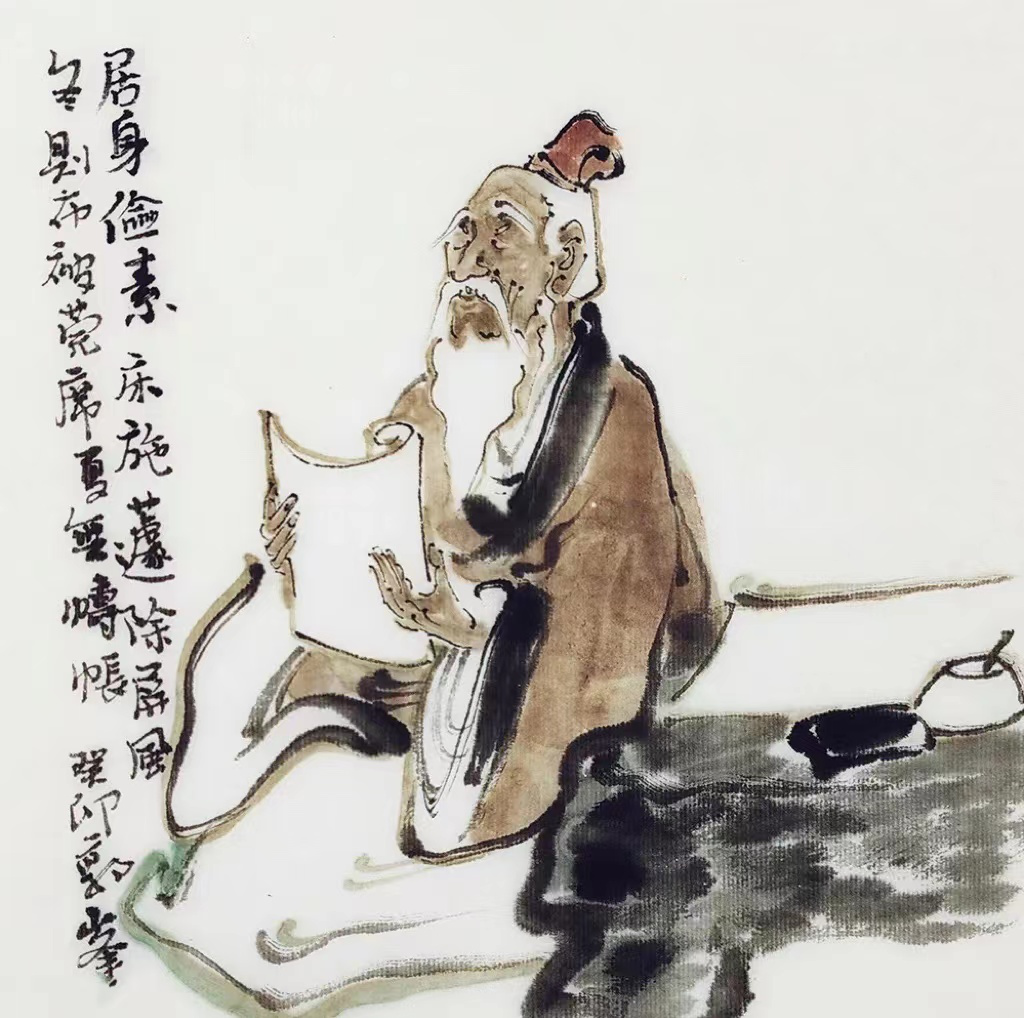 居身儉素床施蘧蒢屏風
冬則布被莞席夏無幬帳 癸卯